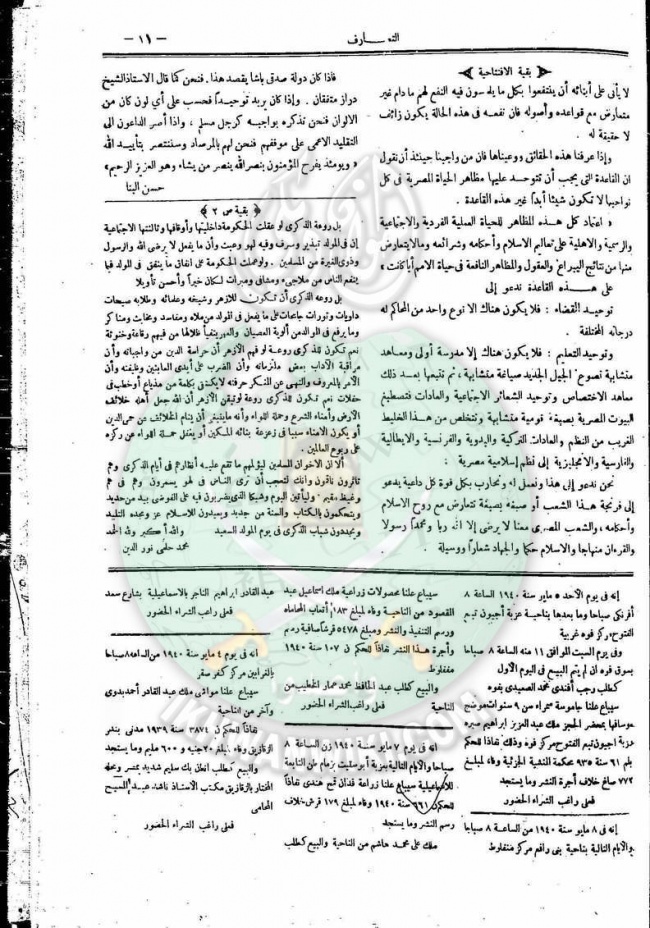 — ١١ —
التعارف
بقية الافتتاحية
لا يأبى على أبنائه أن ينتفعوا بكل ما يلمسون فيه النفع لهم ما دام غير
متعارض مع قواعده وأصوله فان نفعه فى هذه الحالة يكون زائف
لا حقيقة له .
وإذا عرفنا هذه الحقائق ووعيناها فان من واجبنا حينئذ أن نقول
ان القاعدة التى يجب أن تتوحد عليها مظاهر الحياة المصرية فى كل
نواحيها لا تكون شيئا أبداً غير هذه القاعدة .
« اعتماد كل هذه المظاهر للحياة العملية الفردية والاجتماعية
والرسمية والاهلية على تعاليم الاسلام وأحكامه وشرائعه ومالايتعارض
منها من نتائج اليراع والعقول والمظاهر النافعة فى حياة الامم أيا كانت »
على هذه القاعدة ندعو إلى
توحيد القضاء : فلا يكون هناك الا نوع واحد من المحاكم له
درجاته المختلفة .
وتوحيد التعليم : فلا يكون هناك إلا مدرسة أولى ومعاهد
متشابهة تصوغ الجيل الجديد صياغة متشابهة ، ثم تتبعها بعد ذلك
معاهد الاختصاص وتوحيد الشعائر الاجتماعية والعادات فتصطبغ
البيوت المصرية بصبغة قومية متشابهة وتتخلص من هذا الخليط
الغريب من النظم والعادات التركية والبدوية والفرنسية والايطالية
والفارسية والانجليزية إلى نظم إسلامية مصرية :
نحن ندعو إلى هذا ونعمل له ونحارب بكل قوة كل داعية يدعو
إلى فرنجة هذا الشعب أو صبغه بصبغة تتعارض مع روح الاسلام
وأحكامه ، والشعب المصرى معنا لا يرضى إلا الله ربا ومحمداً رسولا
والقرءان منهاجا والاسلام حكما والجهاد شعاراً ووسيلة .
فاذا كان دولة صدقى باشا يقصد هذا . فنحن كما قال الاستاذ الشيخ
دراز متفقان . وإذا كان يريد توحيداً فحسب على أي لون كان من
الالوان فنحن نذكره بواجبه كرجل مسلم ، واذا أصر الداعون الى
التقليد الاعمى على موقفهم فنحن لهم بالمرصاد وسننتصر بتأييد الله
« ويومئذ يفرح المؤمنون بنصر الله ينصر من يشاء وهو العزيز الرحيم »
حسن البنا
بقية ص ٢
بل روعة الذكرى لو عقلت الحكومة داخليتها وأوقافها وثالثتها الاجتماعية
إن فى المولد تبذير وسرف وفيه لهو وعبث وأن ما يفعل لا يرضى الله والرسول
وذوى الغيرة من المسلمين . ولو عملت الحكومة على انفاق ما ينفق فى المولد فيما
ينفع الناس من ملاجىء ومشافى ومبرات لكان خيراً وأحسن تأويلا
بل روعه الذكرى أن تكون للازهر وشيخه وعلمائه وطلابه صيحات
داويات وثورات جامحات على ما يفعل فى المولد من ملاه ومفاسد وخبث ومناكر
وما يرفع فى الموالد من ألوية العصيان
نعم تكون للذكرى روعة لو فهم الازهر أن حراسة الدين من واجباته وأن
مراقبة الآداب بعض ملزماته وأن الضرب على أيدى العابثين وظيفته وأن
الأمر بالمعروف والنهى عن المنكر حرفته لا يكتفى بكلمة من مذياع أو خطب فى
حفلات نعم تكون للذكرى روعة لو تيقن الازهر أن الله جعل أهله خلائف
الأرض وأمناء الشرع وحملة اللواء وأنه ما ينبغى أن ينام الخلائف عن حمى الدين
أو يكون الامناء سببا فى زعزعة بنائه المسكين أو يغفل حملة اللواء عن ركزه
على ربوع العالمين .
ألا ان الاخوان المسلمين ليؤلمهم ما تقع عليه أنظارهم فى أيام الذكرى وهم
ثائرون ناقون وانك لتعجب أن ترى الناس فى لهو يسمرون وهم فى هم
وغيظ مقيم . وليأتين اليوم وشيكا الذى يضربون فيه على الفوضى بيد من حديد
ويتحكمون بالكتاب والسنة من جديد ويعيدون للاسلام عزه ومجده التليد
ويمجدون شباب الذكرى فى يوم المولد السعيد والله أكبر ولله الحمد
محمد حلمى نور الدين
إنه فى يوم الأحد ٥ مايو سنة ١٩٤٠ الساعة ٨
أفرنكى صباحا وما بعدها بناحية عزبة أجيون تيم
الفتوح مركز فوه غربية
وفى يوم السبت الموافق ١١ منه الساعة ٨ صباحا
بسوق فوه ان لم يتم البيع فى اليوم الأول
كطلب رجب أفندى محمد الصعيدى بفوه
سيباع علنا جاموسة حمراء سن ٩ سنوات موضح
أوصافها بمحضر الحجز ملك عبد العزيز ابراهيم سبره
عزبة أجيون تيم الفتوح مركز فوه وذلك نفاذا للحكم
نمرة ٦١ سنة ٩٣٥ محكمة النشنية الجزئية وفاء لمبلغ
٧٧٢ صاغ خلاف أجرة النشر وما يستجد
فعلى راغب الشراء الحضور
إنه فى ٨ مايو سنة ١٩٤٠ من الساعة ٨ صباحا
والايام التالية بناحية بنى رافع مركز منفلوط
سيباع علنا محصولات زراعية ملك اسماعيل عبد
المقصود من الناحية وفاء لمبلغ ١٨٣ أتعاب المحاماه
ورسم التنفيذ والنشر ومبلغ ٥٤٧٨ قرشا صافية رسم
وأجرة هذا النشر نفاذاً للحكم ن ١٠٧ سنة ١٩٤٠
منفلوط
والبيع كطلب عبد الحافظ محمد عمار الخطيب من
الناحية فعلى راغب الشراء الحضور
إنه فى يوم ٧ مايو سنة ١٩٤٠ من الساعة ٨
صباحا والايام التالية بعزبة أبو سليت بزمام طن التابعة
للاسماعيلية سيباع علنا زراعة فدان قمح هندى نفاذاً
للحكم ن ٦٦١ سنة ١٩٤٠ وفاء لمبلغ ١٧٩ قرش خلاف
رسم النشر وما يستجد
ملك على محمد هاشم من الناحية والبيع كطلب
عبد القادر ابراهيم التاجر بالاسماعيلية بشارع سعد
فعلى راغب الشراء الحضور
إنه فى يوم ٤ مايو سنة ١٩٤٠ من الساعه ٨ صباحا
بالقرايين مركز كفر صقر
سيباع علنا مواشى ملك عبد القادر أحمد بدوى
وآخر من الناحية
نفاذاً للحكم ن ٣٨٧٤ سنة ١٩٣٩ مدنى بندر
الزقازيق وفاء لمبلغ ٢٠ جنيه و ٦٠٠ مليم وما يستجد
والبيع كطلب
المختار بالزقازيق مكتب الاستاذ ناشد عبد المسيح
المحامى
فعلى راغب الشراء الحضور
IKHWANWIKI.COM